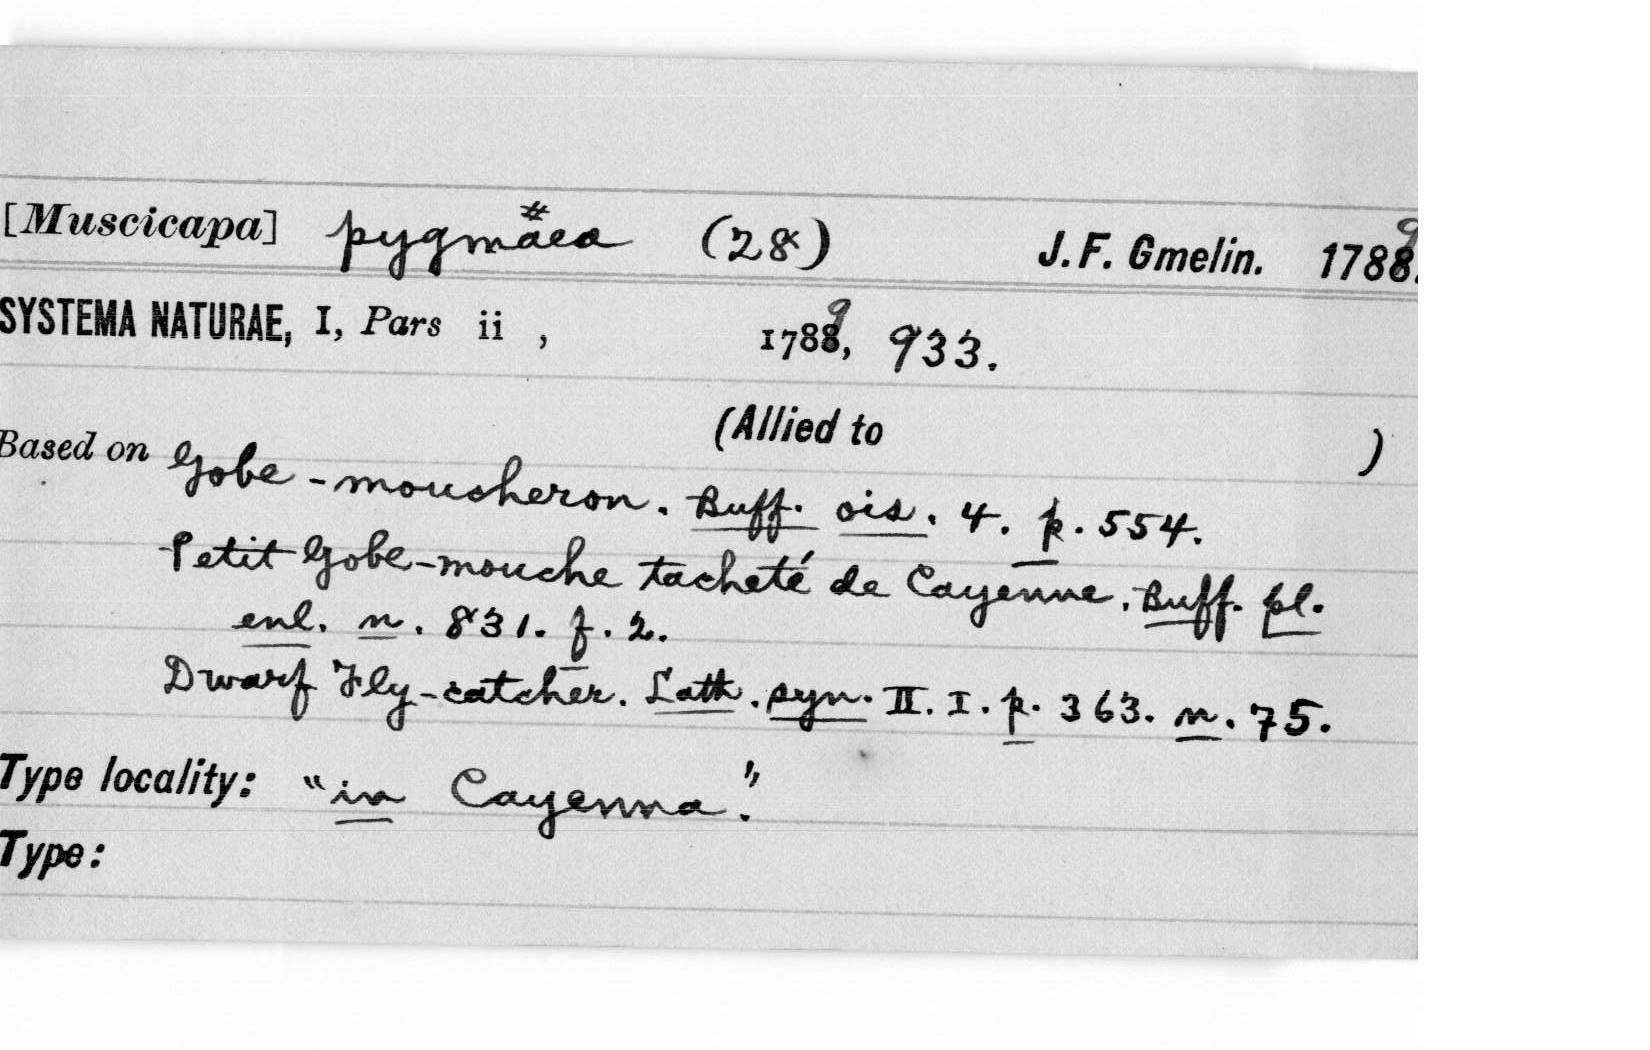 [Muscicapa] pygmaea # (28) J. F. Gmelin. 17889.
SYSTEMA NATURAE, I, Pars ii , 17889, 933.
(Allied to )
Based on Gobe-moucheron. Buff. ois. 4. p. 554.
Petit Gobe-mouche tacheté de Cayenne. Buff. pl.
enl. n. 831. f. 2.
Dwarf Fly-catcher. Lath. syn. II. I. p. 363. n. 75.
Type locality: "in Cayenna."
Type: